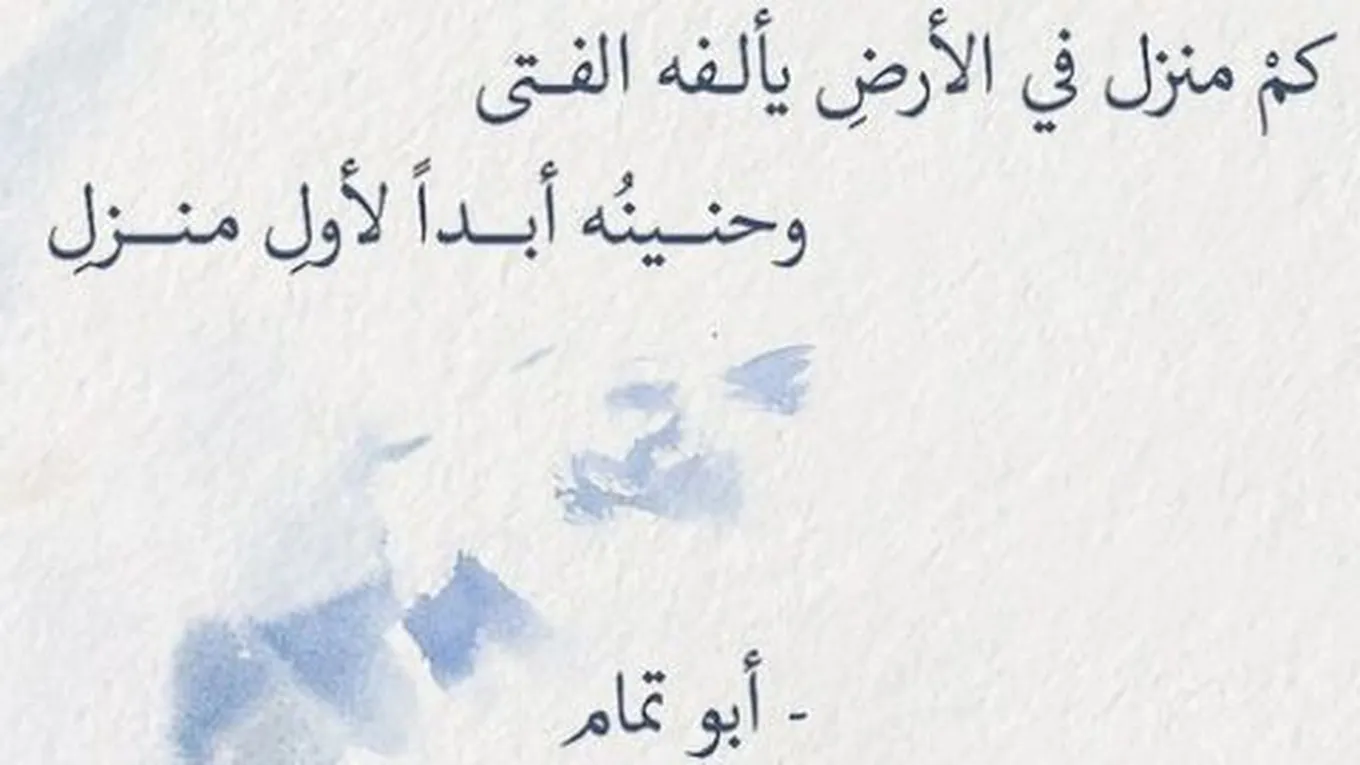 كمْ منزل في الأرضِ يألـفه الفـتى
وحنـــينُه أبـــداً لأولِ منـــزلِ
- أبو تمام